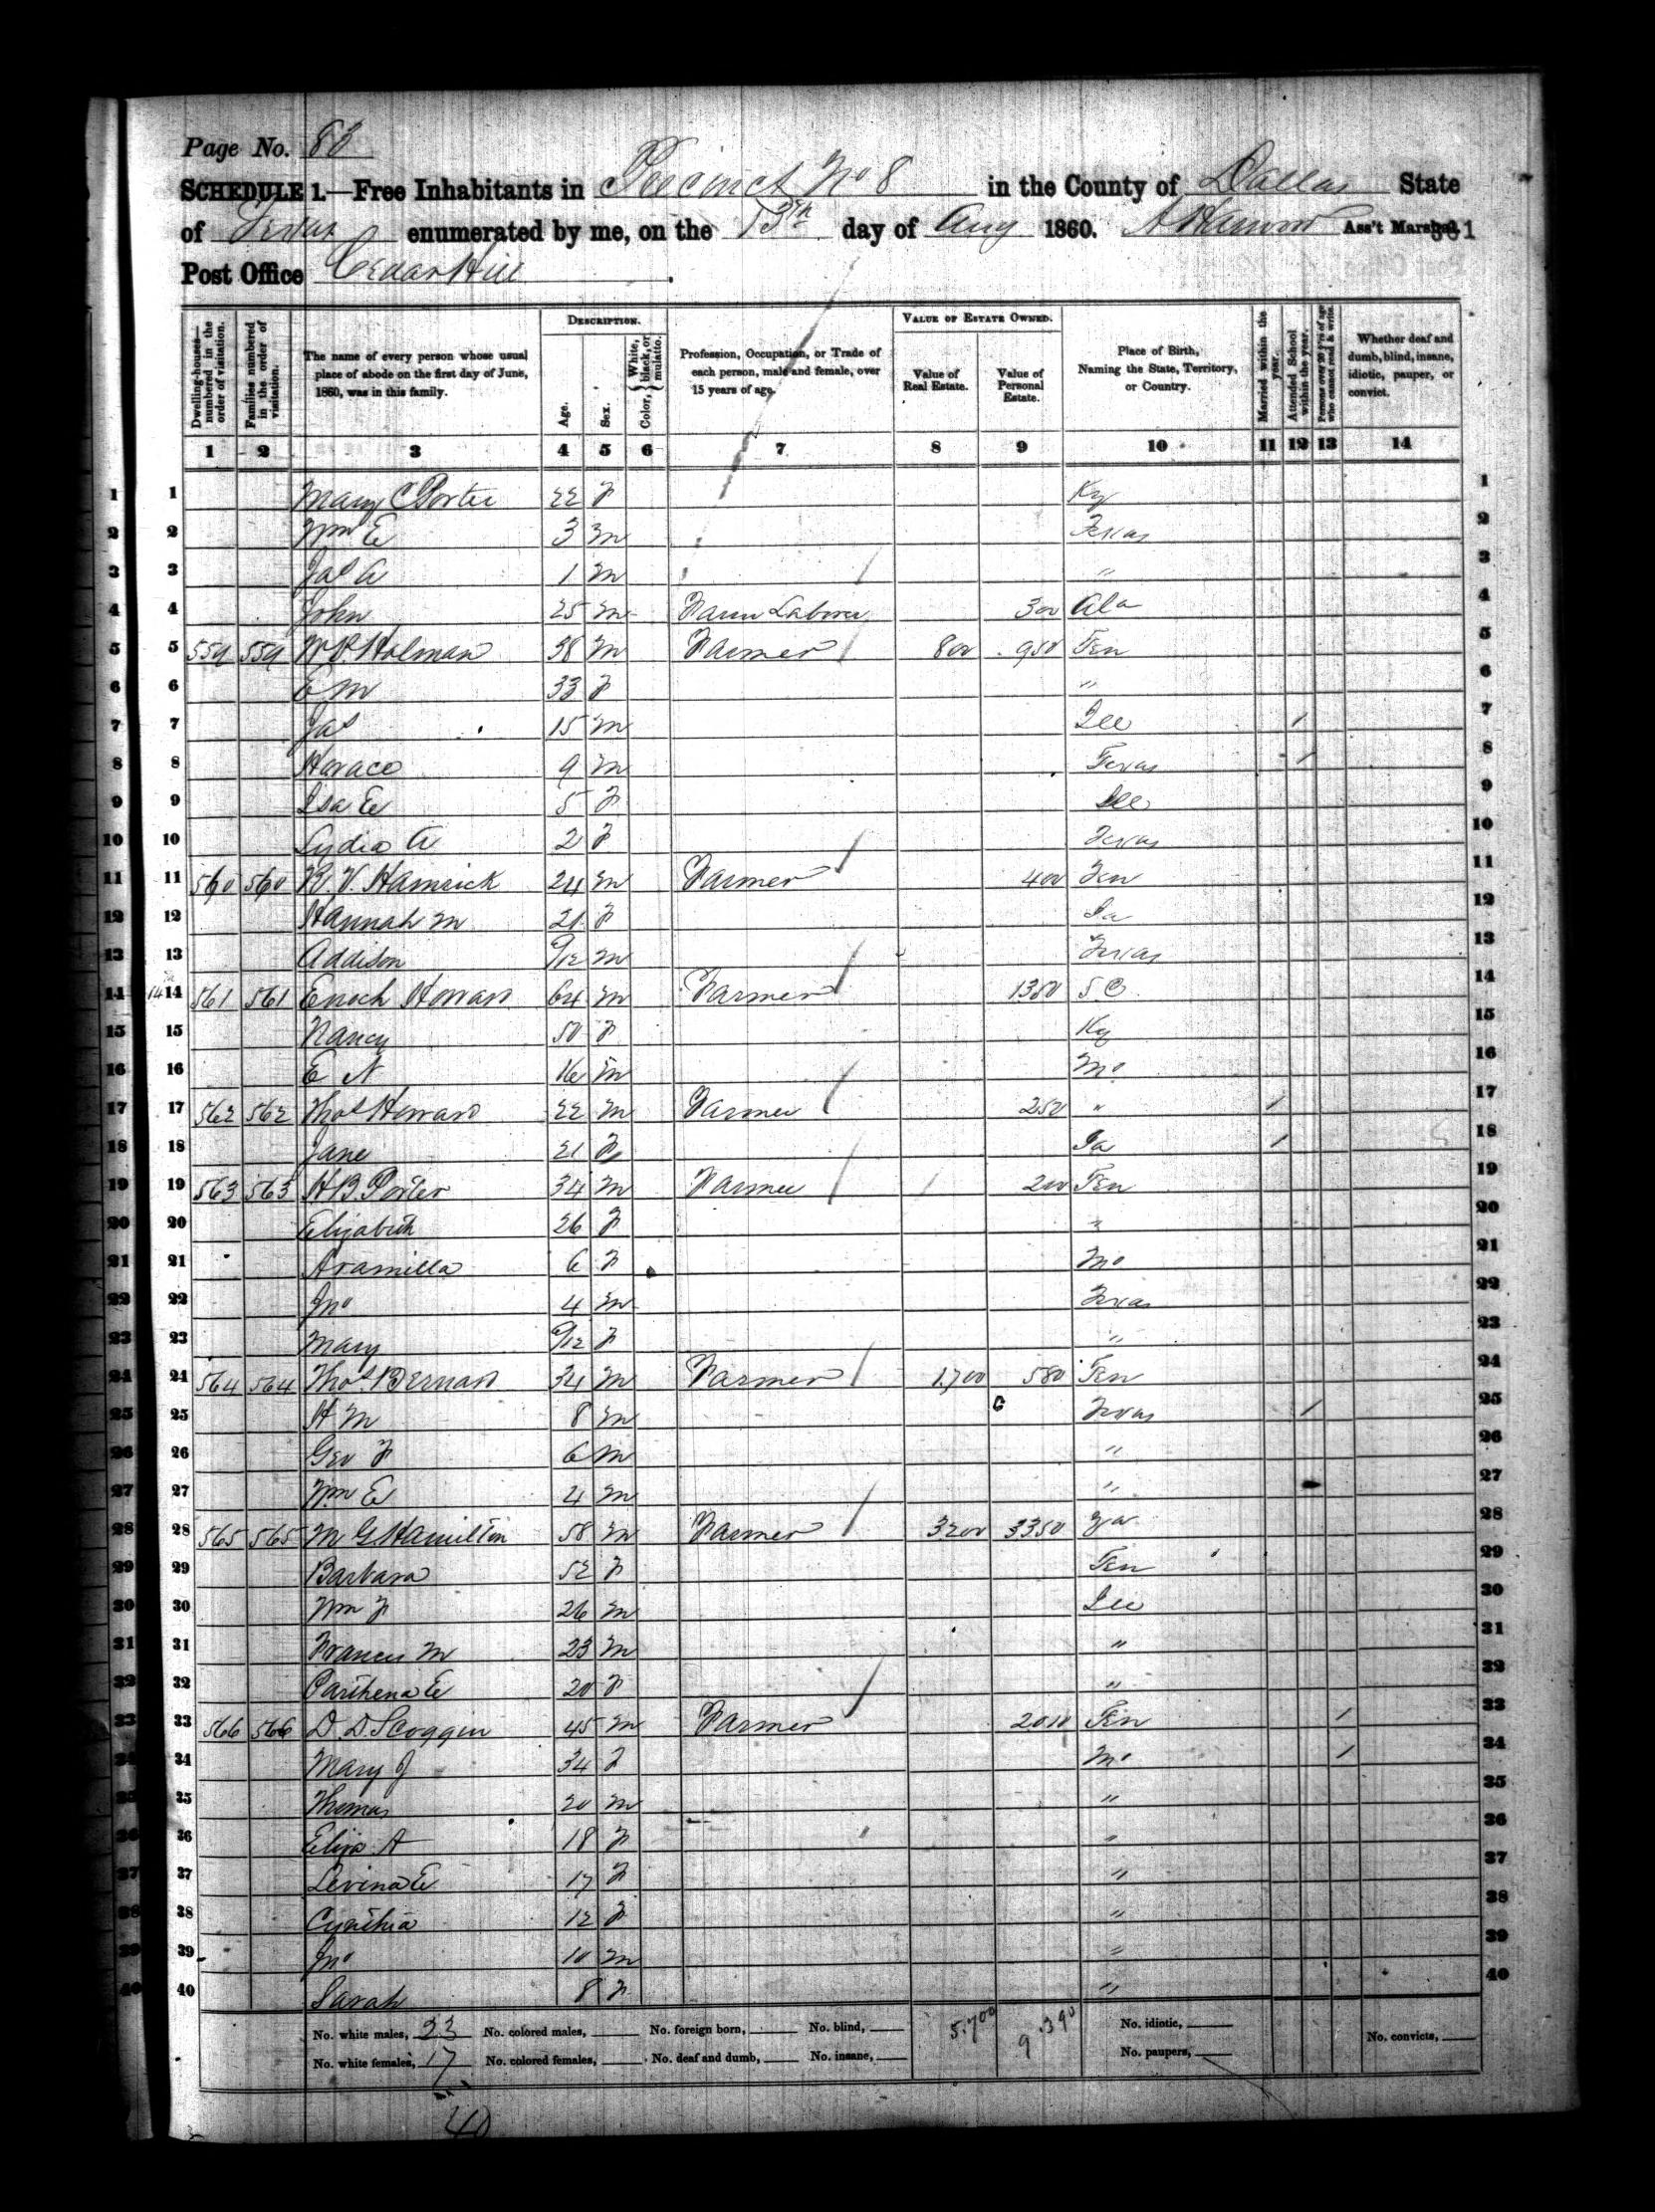 Page No. 83
SCHEDULE 1.—Free Inhabitants in Precinct No 8 in the County of Dallas State
of Texas enumerated by me, on the 13th day of Aug 1860. Ass't Marshal.
Post Office Cedar Hill
DESCRIPTION. VALUE OF ESTATE OWNED.
Dwelling-houses—numbered in the order of visitation. Families numbered in the order of visitation. The name of every person whose usual place of abode on the first day of June, 1860, was in this family. Age. Sex. Color, White, black, or mulatto. Profession, Occupation, or Trade of each person, male and female, over 15 years of age. Value of Real Estate. Value of Personal Estate. Place of Birth, Naming the State, Territory, or Country. Married within the year. Attended School within the year. Persons over 20 y'rs of age who cannot read & write. Whether deaf and dumb, blind, insane, idiotic, pauper, or convict.
1 2 3 4 5 6 7 8 9 10 11 12 13 14
1 1 Mary C Porter 22 F Ky 1
2 2 Wm E 3 m Texas 2
3 3 Jas A 1 m " 3
4 4 John 25 m Farm Laborer 300 Ala 4
5 5 559 559 W P. Holman 38 m Farmer / 800 950 Ten 5
6 6 E M 33 F " 6
7 7 Jas 15 m Ill / 7
8 8 Horace 9 m Texas / 8
9 9 Isa E 5 F Ill 9
10 10 Lydia A 2 F Texas 10
11 11 560 560 R. V. Hamrick 24 m Farmer / 400 Ten 11
12 12 Hannah M 21 F Ia 12
13 13 Addison 9/12 m Texas 13
14 14 14 561 561 Enoch Horran 64 m Farmer / 1350 S C. 14
15 15 Nancy 50 F Ky 15
16 16 E N 16 m Mo 16
17 17 562 562 Thos Horran 22 m Farmer / 250 " / 17
18 18 Jane 21 F Ia / 18
19 19 563 563 H B. Porter 34 m Farmer / 200 Ten 19
20 20 Elizabeth 26 F " 20
21 21 Aramilla 6 F Mo 21
22 22 Jno 4 m Texas 22
23 23 Mary 9/12 F " 23
24 24 564 564 Thos. Bernard 34 m Farmer / 1,700 580 Ten 24
25 25 H M 8 m Texas / 25
26 26 Geo F 6 m " 26
27 27 Wm E 4 m " 27
28 28 565 565 M G. Hamilton 58 m Farmer / 3200 3350 Va 28
29 29 Barbara 52 F Ten 29
30 30 Wm F 26 m Ill 30
31 31 Francis M 23 m " 31
32 32 Parthena E 20 F " 32
33 33 566 566 D. D. Scoggin 45 m Farmer / 2010 Ten / 33
34 34 Mary J 34 F Mo / 34
35 35 Thomas 20 m " 35
36 36 Eliza A 18 F " 36
37 37 Levina E 17 F " 37
38 38 Cynthia 12 F " 38
39 39 Jno 10 m " 39
40 40 Sarah 8 F " 40
No. white males, 23 No. colored males, No. foreign born, No. blind, 5.700 9.390 No. idiotic, No. convicts,
No. white females, 17 No. colored females, No. deaf and dumb, No. insane, No. paupers,
40